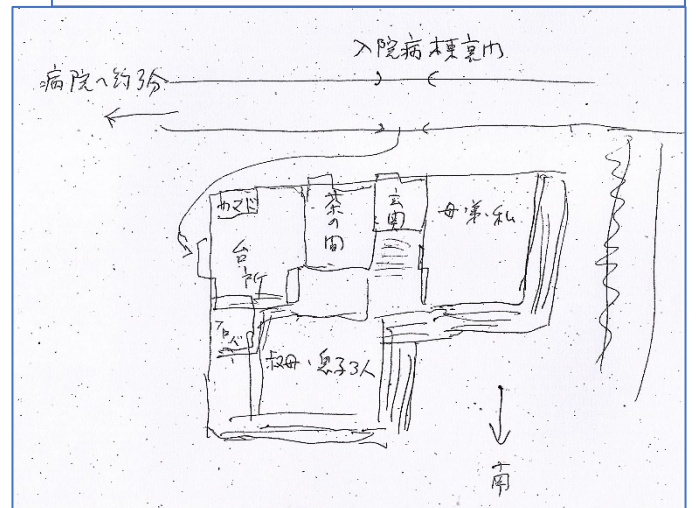 入院病棟裏門
病院へ約3分
カマド
茶の間
玄関
母・弟・私
台所
フロ
叔母・息子3人
南